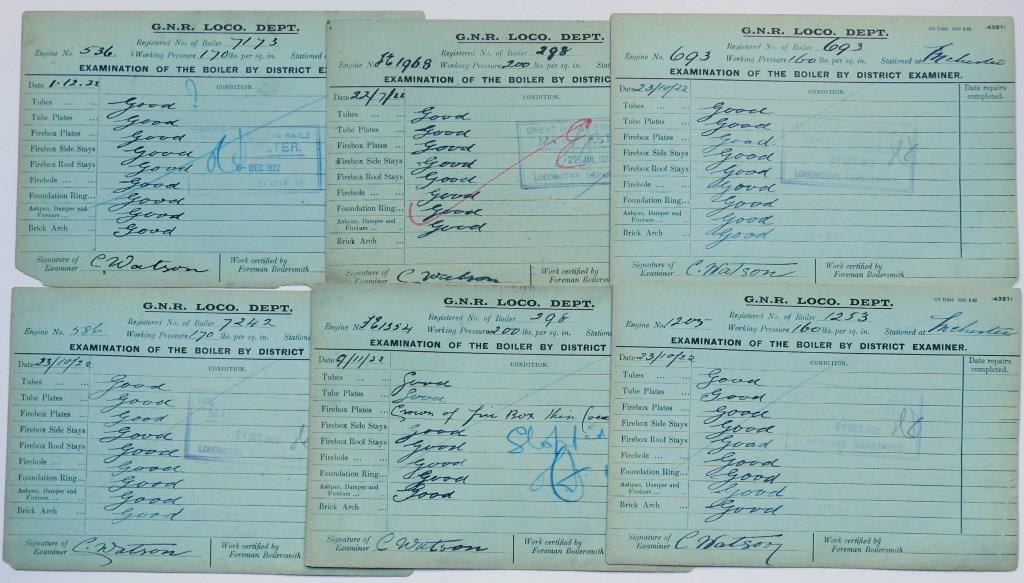 G.N.R. LOCO. DEPT.
Registered No. of Boiler 7173
Engine No. 536. Working Pressure 170 lbs. per sq. in. Stationed
EXAMINATION OF THE BOILER BY DISTRICT E
Date 1.12.22 CONDITION. ?
Tubes ... Good
Tube Plates Good
Firebox Plates Good
Firebox Side Stays Good
Firebox Roof Stays Good
Firehole ... Good
Foundation Ring... Good
Ashpan, Damper and Foobars ... Good
Brick Arch ... Good
6- DEC 1922
Signature of Examiner C. Watson Work certified by Foreman Boilersmith
G.N.R. LOCO. DEPT.
Registered No. of Boiler 298
Engine No. 1968 Working Pressure 200 lbs. per sq. in. Station
EXAMINATION OF THE BOILER BY DISTRICT
Date 22/7/22 CONDITION.
Tubes ... Good
Tube Plates Good
Firebox Plates Good
Firebox Side Stays Good
Firebox Roof Stays Good
Firehole ... Good
Foundation Ring... Good
Ashpan, Damper and Foobars ... Good
Brick Arch
GREAT
JUL 1922
LOCOMOTIVE DEPAR
Signature of Examiner C Watson Work certified by Foreman Boilersmith
G.N.R. LOCO. DEPT.
(4391)
Registered No. of Boiler 693
Engine No. 693 Working Pressure 160 lbs. per sq. in. Stationed at
EXAMINATION OF THE BOILER BY DISTRICT EXAMINER.
Date 23/10/22 CONDITION. Date repairs completed.
Tubes ... Good
Tube Plates Good
Firebox Plates Good
Firebox Side Stays Good
Firebox Roof Stays Good
Firehole ... Good
Foundation Ring... Good
Ashpan, Damper and Foobars ... Good
Brick Arch ... Good
Signature of Examiner C. Watson Work certified by Foreman Boilersmith
G.N.R. LOCO. DEPT.
Registered No. of Boiler 7242
Engine No. 586 Working Pressure 170 lbs. per sq. in. Stati
EXAMINATION OF THE BOILER BY DISTRICT
Date 23/10/22 CONDITION.
Tubes ... Good
Tube Plates Good
Firebox Plates Good
Firebox Side Stays Good
Firebox Roof Stays Good
Firehole ... Good
Foundation Ring... Good
Ashpan, Damper and Foobars ... Good
Brick Arch ... Good
24 OCT 1922
LOCOMOTIVE
Signature of Examiner C. Watson Work certified by Foreman Boilersmith
G.N.R. LOCO. DEPT.
Registered No. of Boiler 298
Engine No. 1354 Working Pressure 200 lbs. per sq. in. Station
EXAMINATION OF THE BOILER BY DISTRICT
Date 9/11/22 CONDITION.
Tubes ... Good
Tube Plates Good
Firebox Plates Crown of fire Box thin
Firebox Side Stays Good
Firebox Roof Stays Good
Firehole ... Good
Foundation Ring... Good
Ashpan, Damper and Foobars ... Good
Brick Arch
Signature of Examiner C Watson Work certified by Foreman Boilersmith
G.N.R. LOCO. DEPT.
(4391)
Registered No. of Boiler 1253
Engine No. 1205 Working Pressure 160 lbs. per sq. in. Stationed at
EXAMINATION OF THE BOILER BY DISTRICT EXAMINER.
Date 23/10/22 CONDITION. Date repairs completed.
Tubes ... Good
Tube Plates Good
Firebox Plates Good
Firebox Side Stays Good
Firebox Roof Stays Good
Firehole ... Good
Foundation Ring... Good
Ashpan, Damper and Foobars ... Good
Brick Arch ... Good
24 OCT 1922
Signature of Examiner C Watson Work certified by Foreman Boilersmith